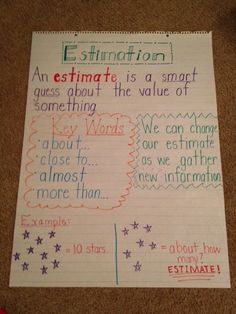 Estimation
An estimate is a smart
guess about the value of
something.
Key Words
about...
close to...
almost
more than...
We can change
our estimate
as we gather
new information
Example:
= 10 stars
= about how
many?
ESTIMATE!